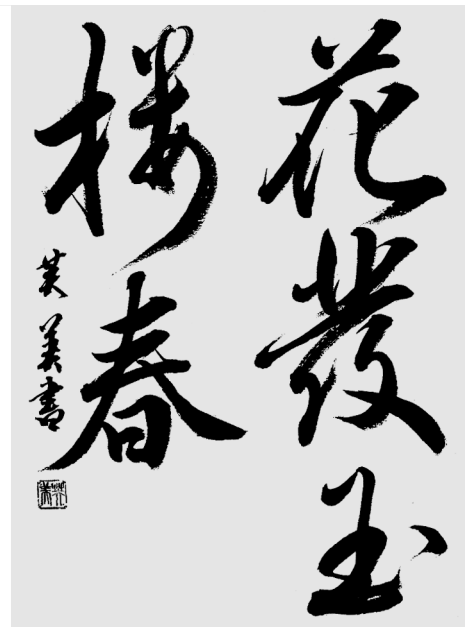 花發玉
樓春
美書